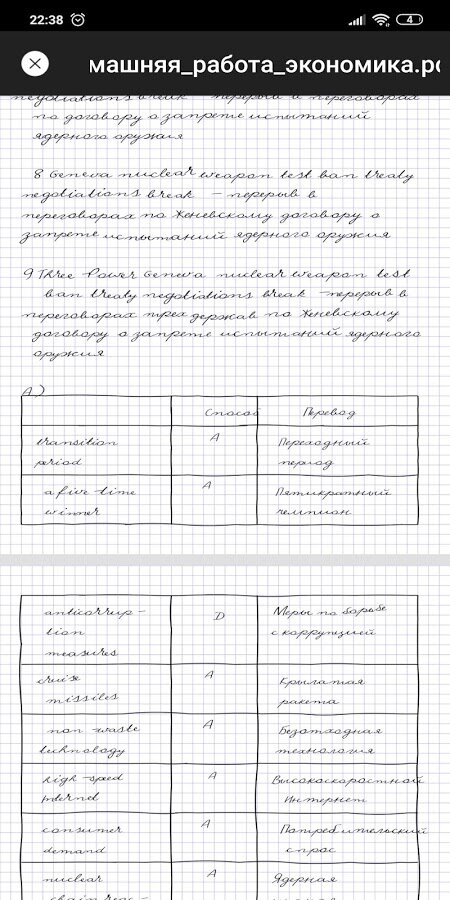 22:38
4
машняя_работа_экономика.pd
negotiations break – перерыв в переговорах
по договору о запрете испытаний
ядерного оружия
8 Geneva nuclear weapon test ban treaty
negotiations break – перерыв в
переговорах по Женевскому договору о
запрете испытаний ядерного оружия
9 Three Power Geneva nuclear weapon test
ban treaty negotiations break – перерыв в
переговорах трех держав по Женевскому
договору о запрете испытаний ядерного
оружия
А)
Способ Перевод
transition А Переходный
period период
a five-time А Пятикратный
winner чемпион
anticorrup- D Меры по борьбе
tion с коррупцией
measures
cruise А Крылатая
missiles ракета
non-waste А Безотходная
technology технология
high-speed А Высокоскоростной
Internet Интернет
consumer А Потребительский
demand спрос
nuclear А Ядерная
chain reac-